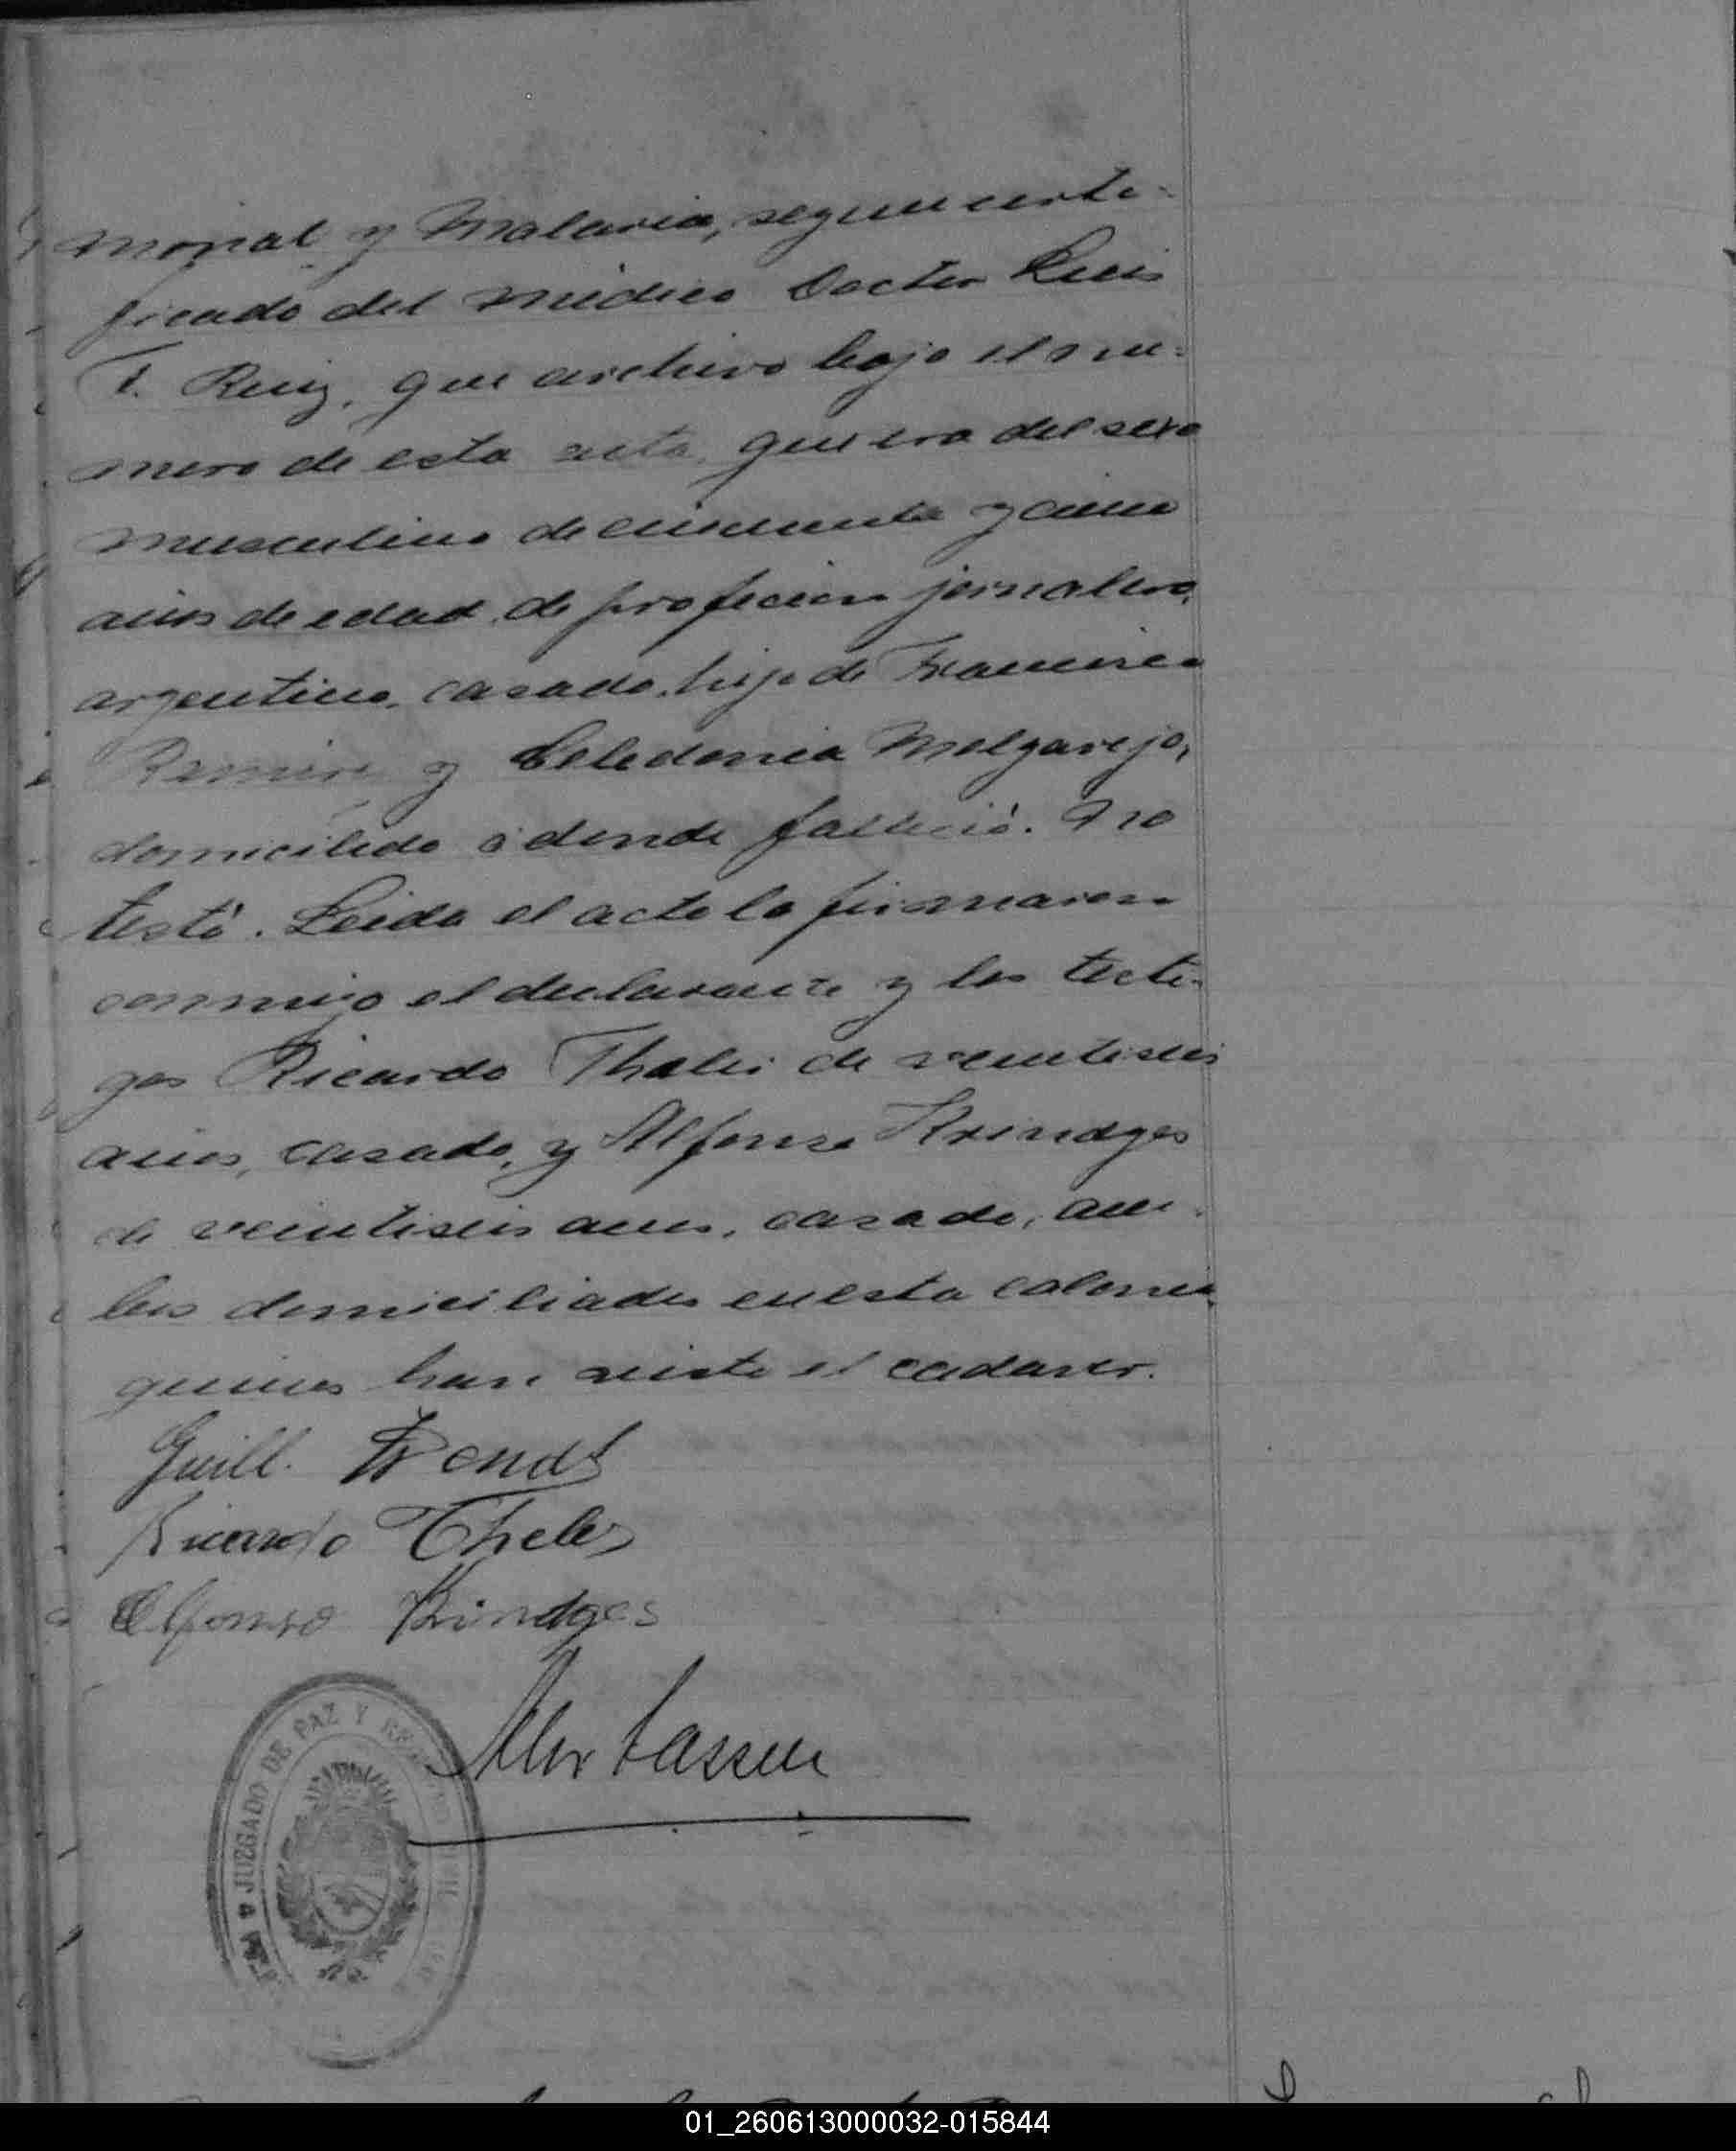 monal y Malaria, segun certi-
ficado del médico Doctor Luis
T. Ruiz, que archivo bajo el nu-
mero de esta acta, que era del sexo
masculino de cincuenta y cinco
años de edad, de profecion jornalero,
argentino, casado, hijo de Francisco
Ramirez y Celedonia Melgarejo,
domiciledo a donde falleció. No
testó. Leida el acta la firmaron
conmigo el declarante y los testi-
gos Ricardo Theler de veintiseis
años, casado, y Alfonso Krindges
de veintiseis años, casado, am-
bos domiciliados en esta colonia,
quienes han visto el cadaver.
Guill.
Ricardo Theler
Alfonso Krindges
JUZGADO DE PAZ Y REGISTRO CIVIL
01_260613000032-015844